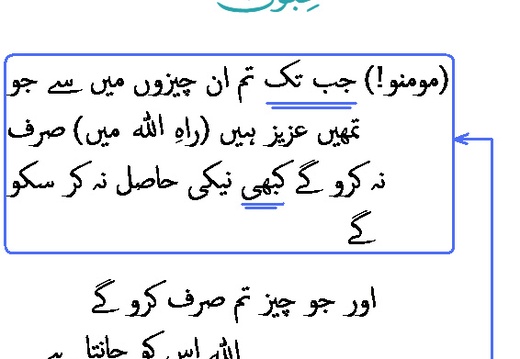 (مومنو!) جب تک تم ان چیزوں میں سے جو
تمھیں عزیز ہیں (راہِ اللہ میں) صرف
نہ کرو گے کبھی نیکی حاصل نہ کر سکو
گے
اور جو چیز تم صرف کرو گے
اللہ اس کو جانتا ہے